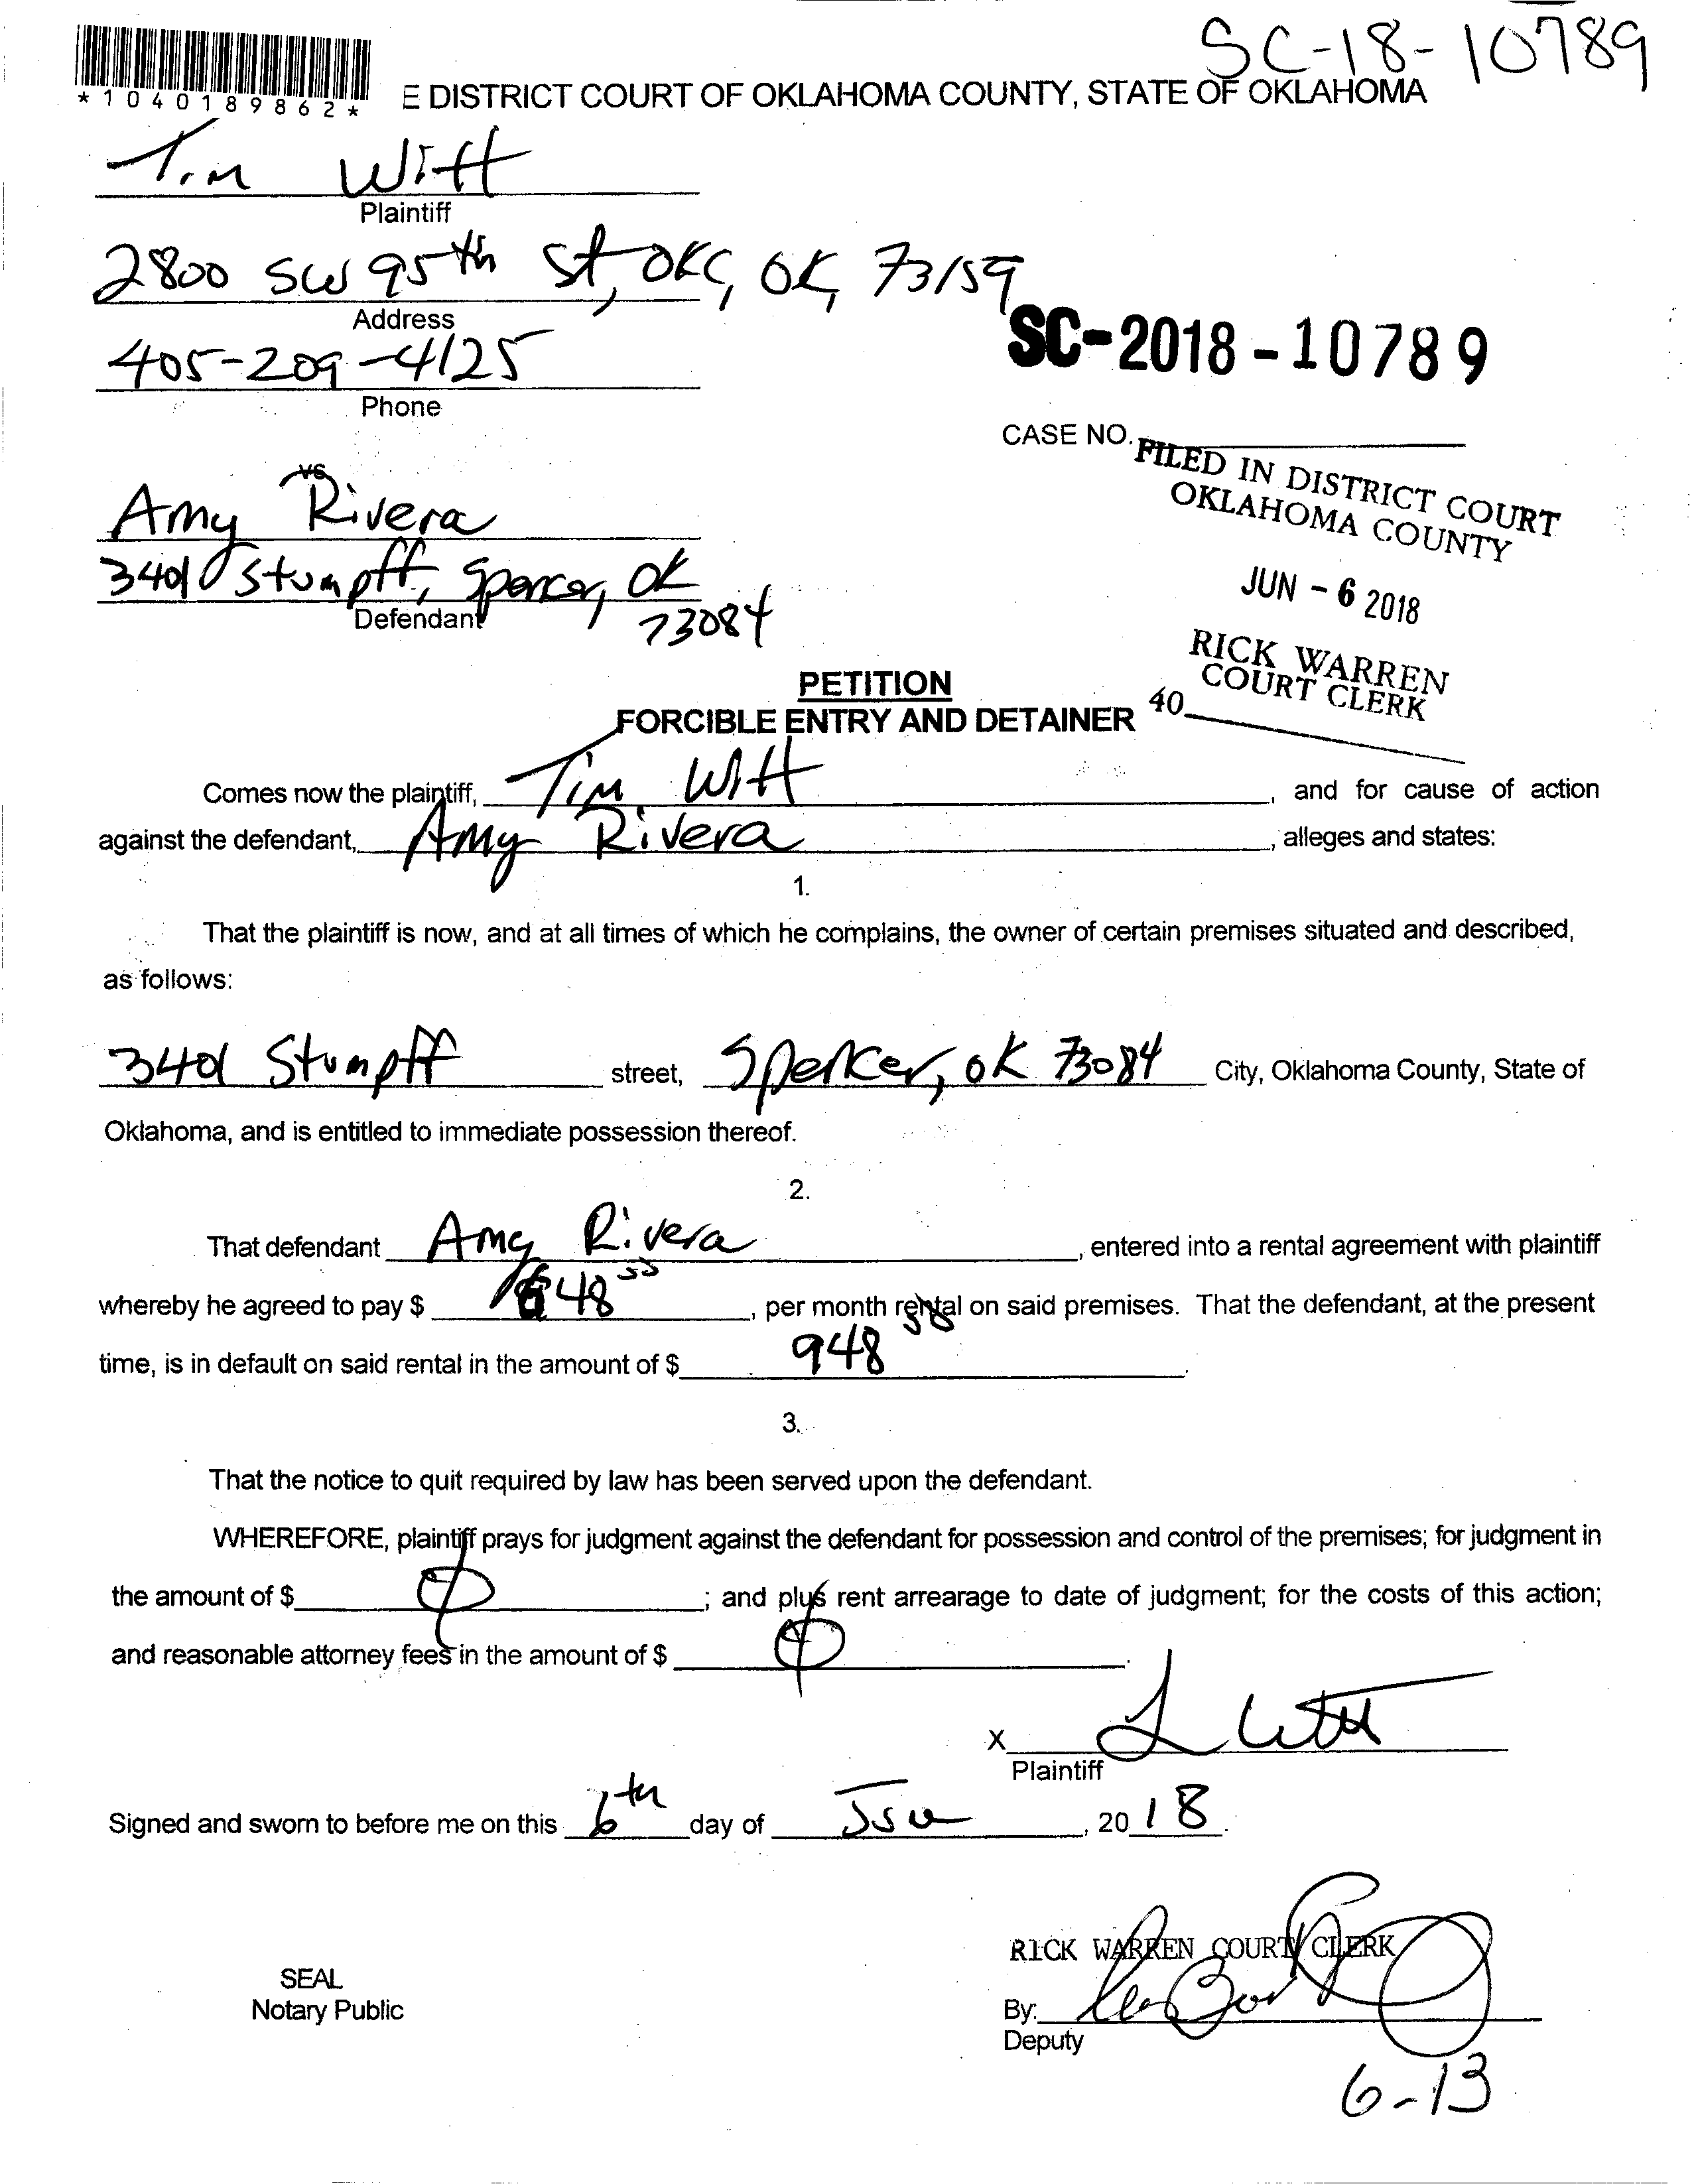 SC-18-10789
*1040189862*
E DISTRICT COURT OF OKLAHOMA COUNTY, STATE OF OKLAHOMA
Tim Witt
Plaintiff
2800 SW 95th St, OKC, OK, 73159
Address
SC-2018-10789
405-209-4125
Phone
CASE NO.
FILED IN DISTRICT COURT
OKLAHOMA COUNTY
JUN - 6 2018
RICK WARREN
COURT CLERK
40
vs
Amy Rivera
3401 Stumpff, Spencer, OK
73084
Defendant
PETITION
FORCIBLE ENTRY AND DETAINER
Comes now the plaintiff, Tim Witt, and for cause of action
against the defendant, Amy Rivera, alleges and states:
1.
That the plaintiff is now, and at all times of which he complains, the owner of certain premises situated and described,
as follows:
3401 Stumpff street, Spencer, OK 73084 City, Oklahoma County, State of
Oklahoma, and is entitled to immediate possession thereof.
2.
That defendant Amy Rivera, entered into a rental agreement with plaintiff
whereby he agreed to pay $ , per month rental on said premises. That the defendant, at the present
time, is in default on said rental in the amount of $ 948.
3.
That the notice to quit required by law has been served upon the defendant.
WHEREFORE, plaintiff prays for judgment against the defendant for possession and control of the premises; for judgment in
the amount of $ ; and plus rent arrearage to date of judgment; for the costs of this action;
and reasonable attorney fees in the amount of $ .
X
Plaintiff
Signed and sworn to before me on this 6th day of , 2018.
RICK WARREN COURT CLERK
SEAL
Notary Public
By:
Deputy
6-13